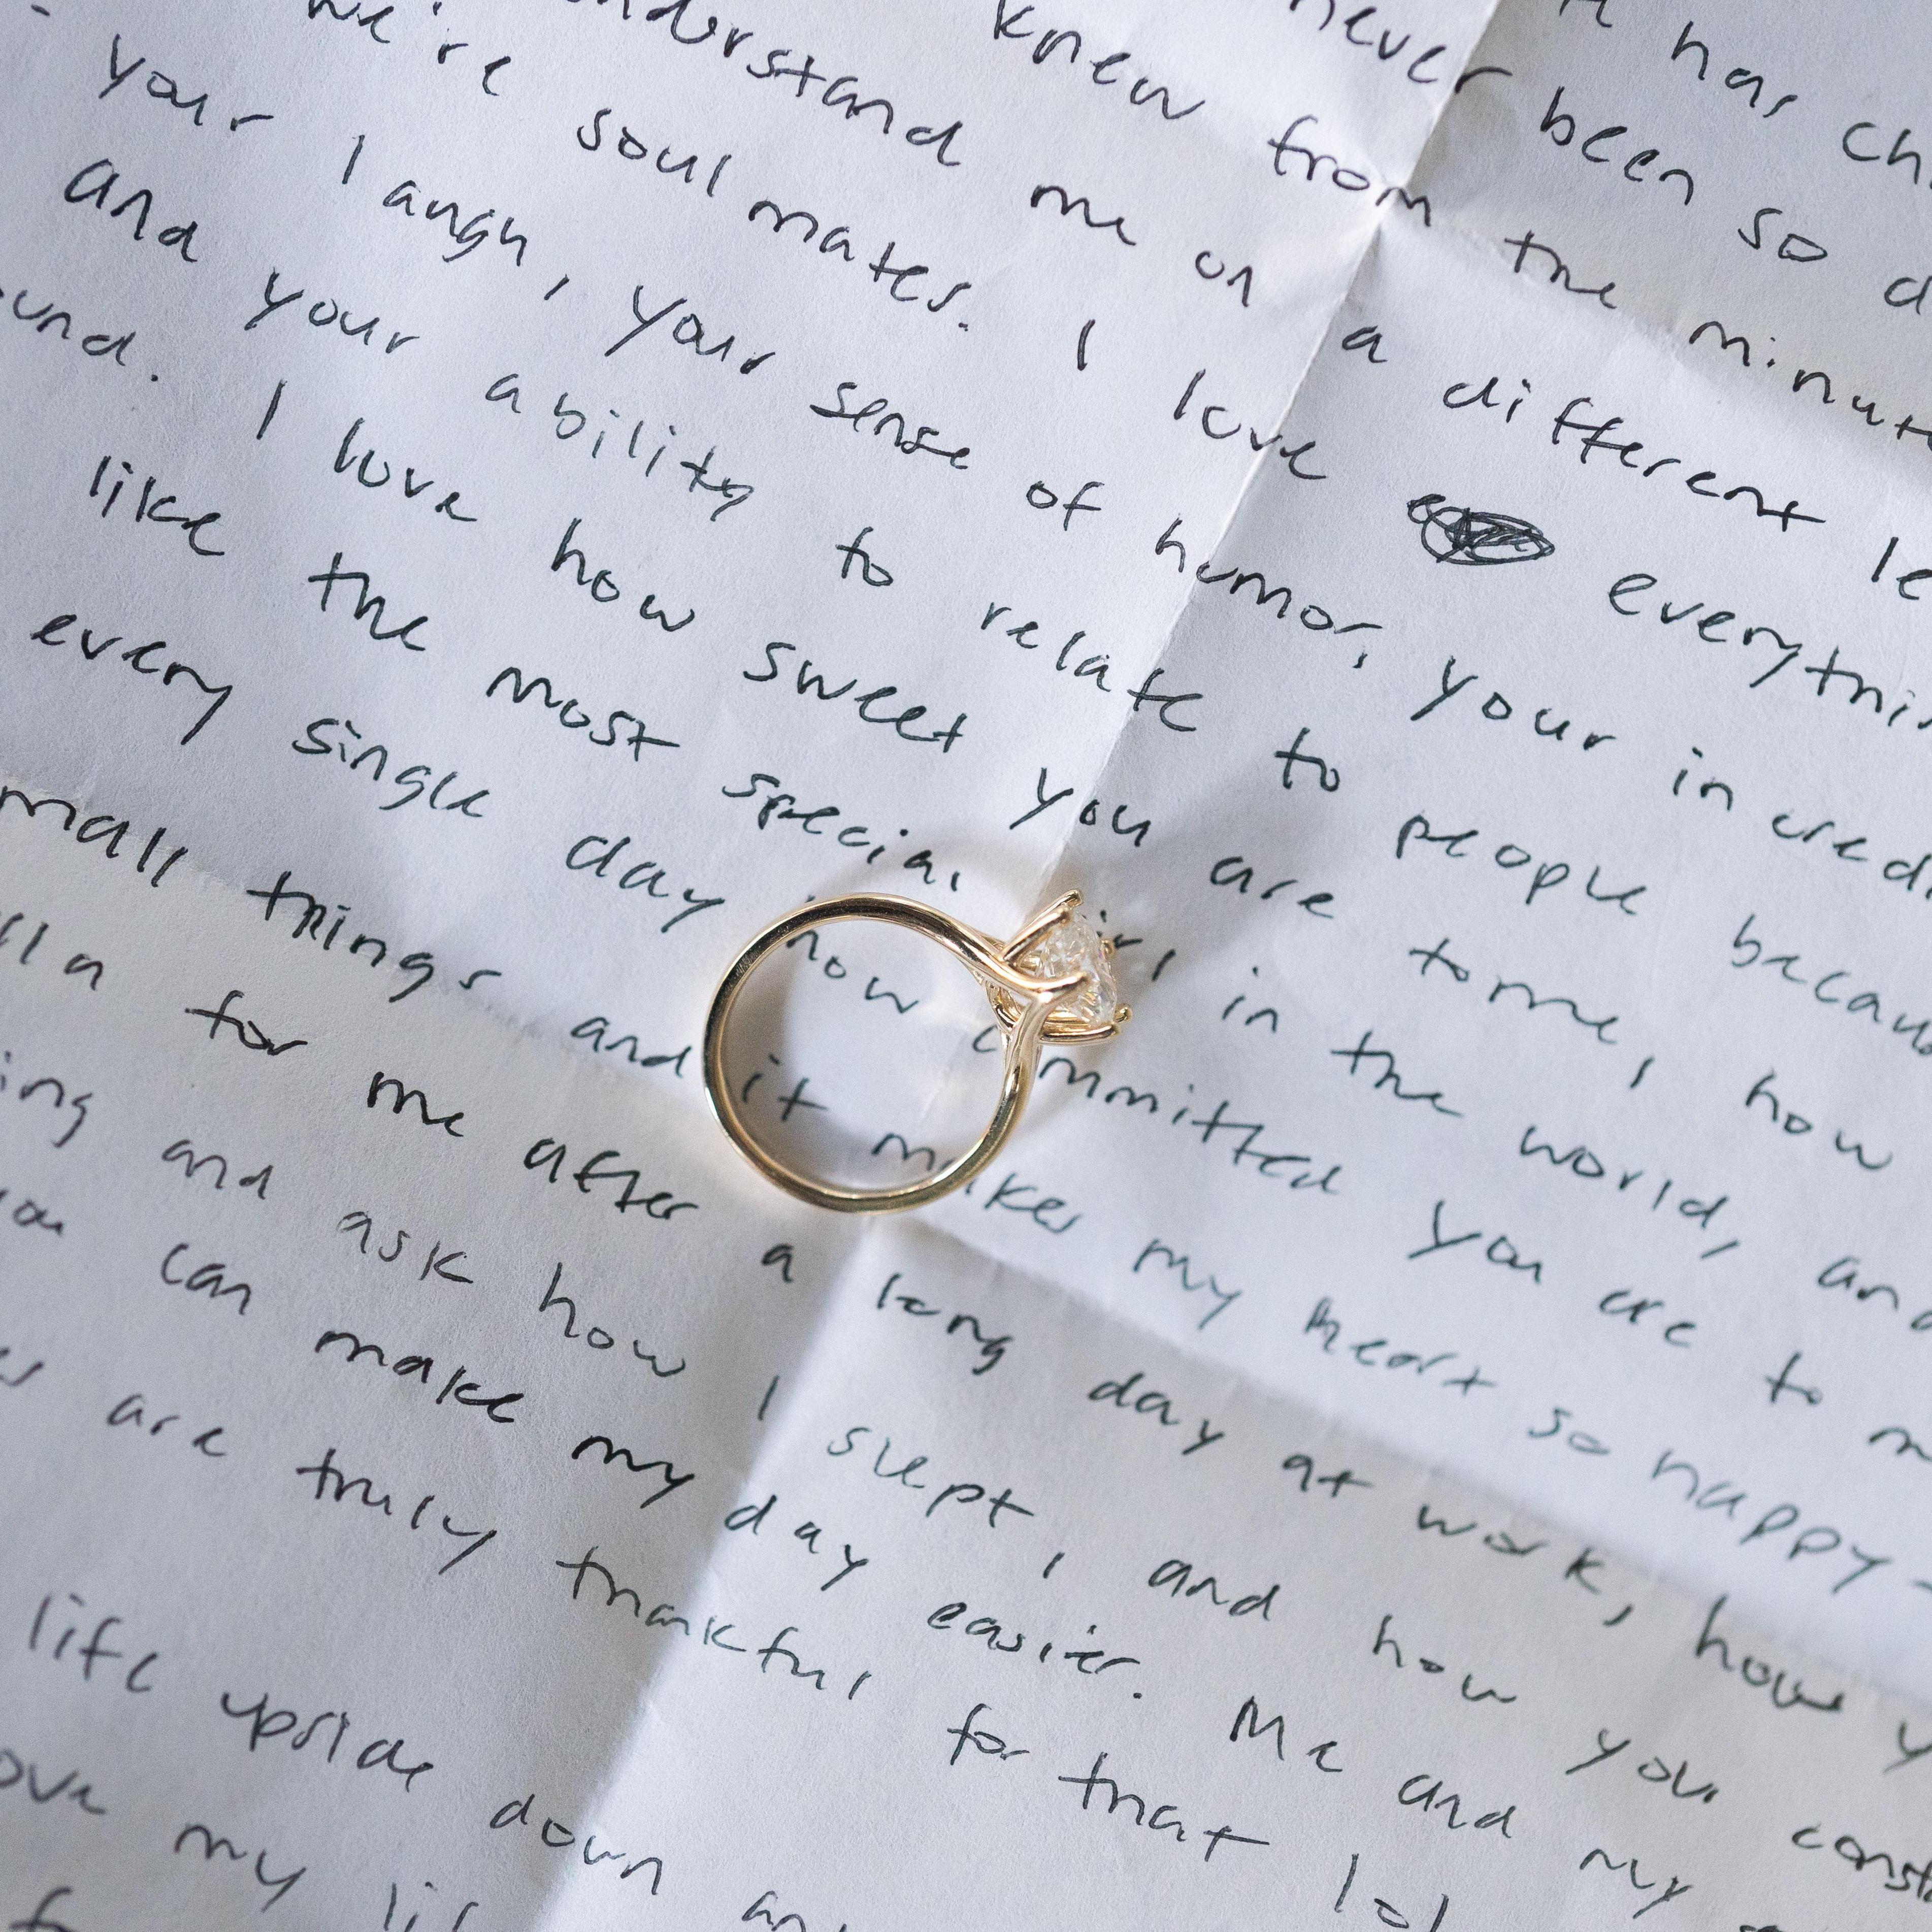 has
never been so
knew from the minute
understand me on a different
we're soulmates. I love everythin
your laugh, your sense of humor, your incredi
and your ability to relate to people becau
ound. I love how sweet you are to me, how
like the most special girl in the world, and
every single day how committed you are to m
mall things and it makes my heart so happy -
lla for me after a long day at work, how y
ing and ask how I slept, and how you consta
ou can make my day easier. Me and my
es are truly thankful for that lol
life upside down an
ove my lif